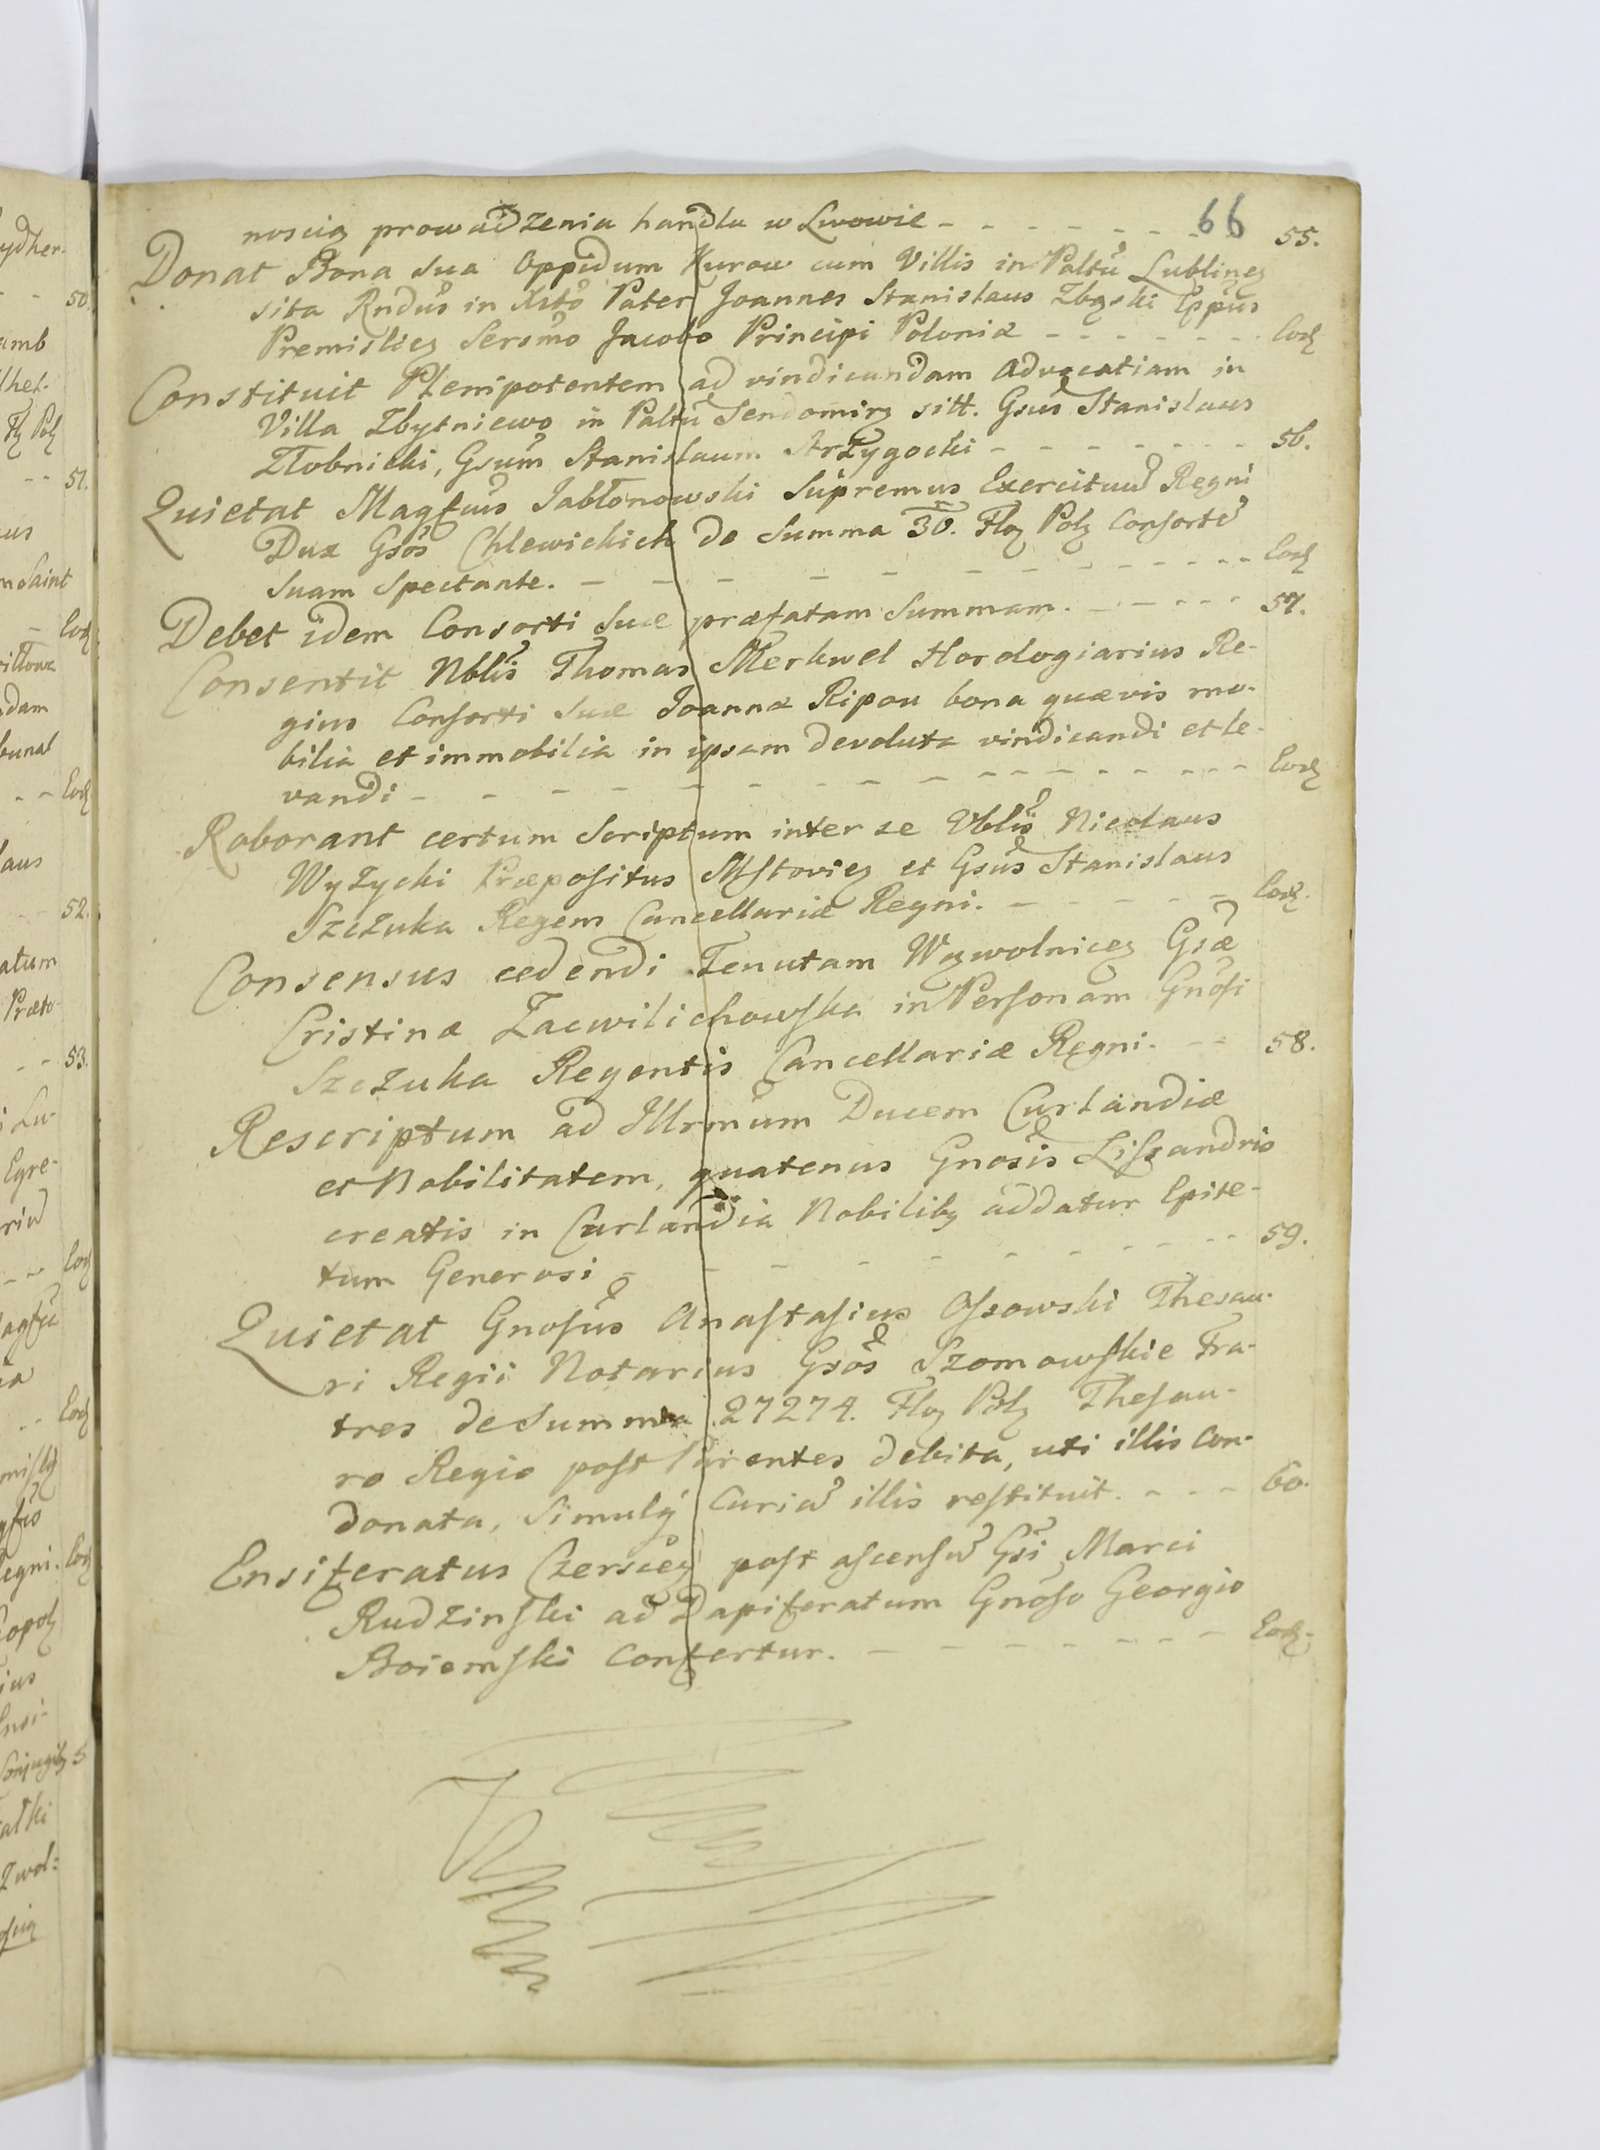 66
noscią prowadzenia handlu w Lwowie - - - - - - - 55.
Donat Bona sua Oppidum Kurow cum Villis in Paltũ Lublineȝ
sita Rndus in Xsto Pater Joannes Stanislaus Zbąski Eppus
Premislieȝ Sersmo Jacobo Principi Poloniæ - - - - - - Eodȝ
Constituit Plenipotentem ad vindicandam Advocatiam in
Villa Zbytniewo in Paltu Sendomirȝ sitt. Gsus Stanislaus
Złobnicki, Gsum Stanislaum Strzygocki - - - - - - - 56.
Quietat Magfcus Jabłonowski Supremus Exercituũ Regni
Dux Gsos Chlewickich de Summa 30. Floȝ Polȝ Consortẽ
Suam Spectante. - - - - - - - - - - - Eodȝ
Debet idem Consorti suæ præfatam Summam. - - - - - 57.
Consentit Nblis Thomas Merkwel Horologiarius Re-
gius Consorti suæ Joannæ Ripou bona quævis mo-
bilia et immobilia in ipsam devoluta vindicandi et le-
vandi - - - - - - - - - - - - - - Eodȝ
Roborant certum Scriptum inter se Vblis Nicolaus
Wyzycki Præpositus Mstovieȝ et Gsus Stanislaus
Szczuka Regens Cancellariæ Regni. - - - - - Eodȝ.
Consensus cedendi Tenutam Wąwolniceȝ Gsæ
Cristinæ Zacwilichowska in Personam Gnosi
Szczuka Regentis Cancellariæ Regni. - - 58.
Rescriptum ad Illrmum Ducem Curlandiæ
et Nobilitatem, quatenus Gnosis Lissandris
creatis in Curlandia Nobilibȝ addatur Epite-
tum Generosi - - - - - - - - - 59.
Quietat Gnosus Anastasius Ossowski Thesau-
ri Regii Notarius Gsos Szomowskie Fra-
tres de Summa 27274. Floȝ Polȝ Thesau-
ro Regio post Parentes debita, uti illis con-
donata, simulq́ Curiã illis restituit. - - - 60.
Ensiferatus Czersceȝ post ascensũ Gsi Marci
Rudzinski ad Dapiferatum Gnoso Georgio
Boiemski Confertur. - - - - - - - Eodȝ.